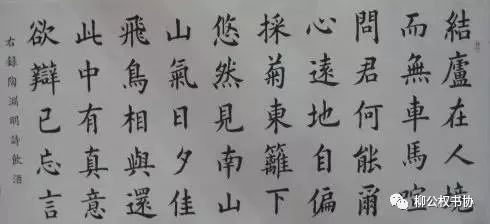 結廬在人境
而無車馬喧
問君何能爾
心遠地自偏
採菊東籬下
悠然見南山
山氣日夕佳
飛鳥相與還
此中有真意
欲辯已忘言
右錄陶淵明詩飲酒
柳公权书协